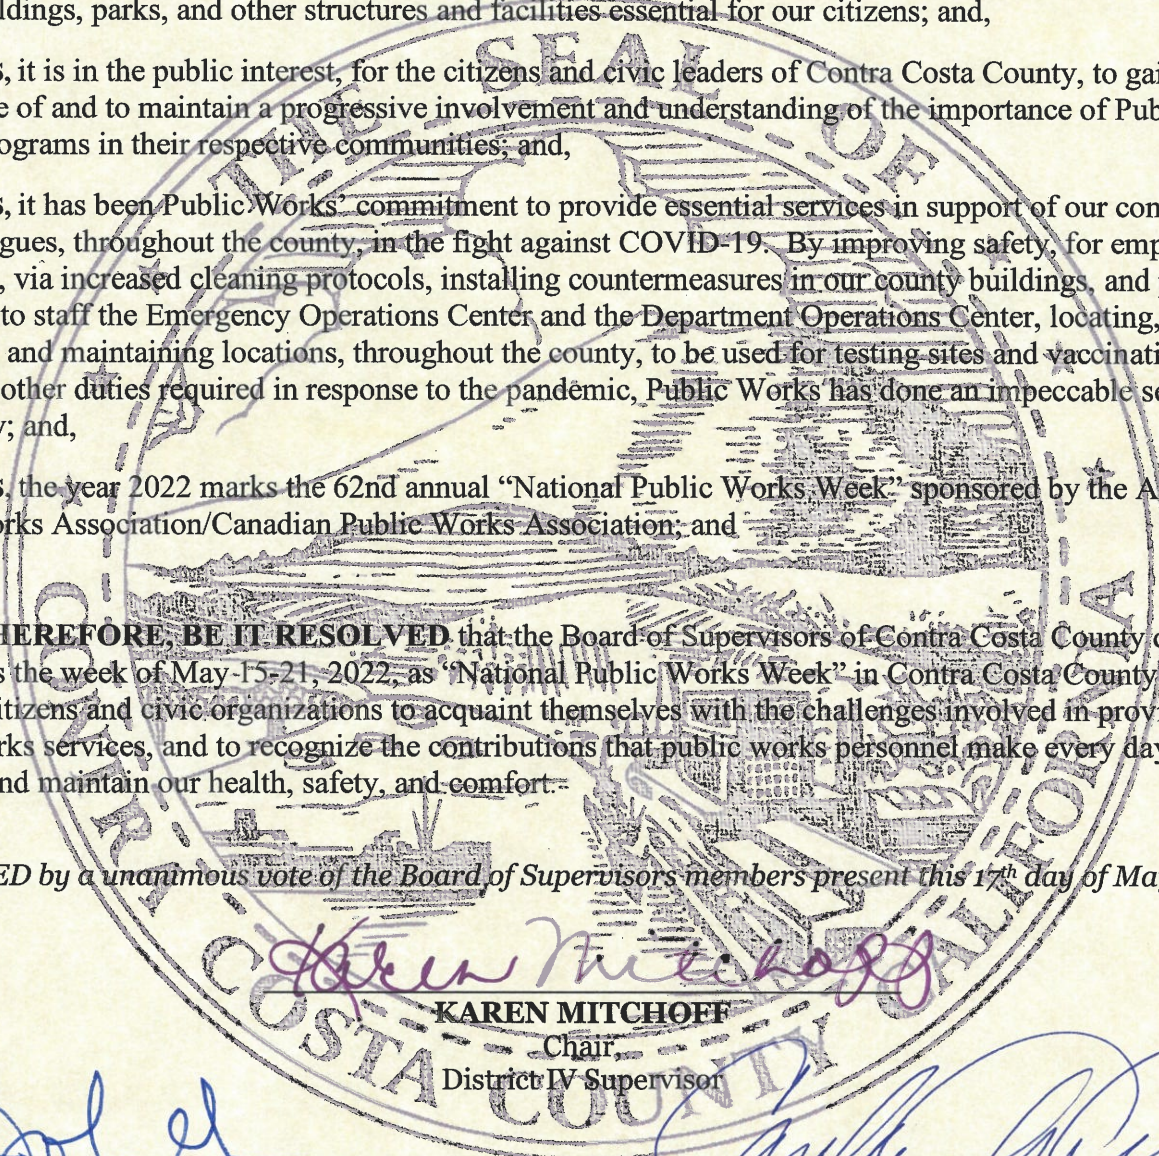 ldings, parks, and other structures and facilities essential for our citizens; and,
s, it is in the public interest, for the citizens and civic leaders of Contra Costa County, to gai
e of and to maintain a progressive involvement and understanding of the importance of Pub
ograms in their respective communities; and,
s, it has been Public Works’ commitment to provide essential services in support of our con
gues, throughout the county, in the fight against COVID-19. By improving safety, for emp
, via increased cleaning protocols, installing countermeasures in our county buildings, and
to staff the Emergency Operations Center and the Department Operations Center, locating,
and maintaining locations, throughout the county, to be used for testing sites and vaccinati
other duties required in response to the pandemic, Public Works has done an impeccable se
y; and,
s, the year 2022 marks the 62nd annual “National Public Works Week” sponsored by the A
orks Association/Canadian Public Works Association; and
HEREFORE, BE IT RESOLVED that the Board of Supervisors of Contra Costa County
s the week of May 15-21, 2022, as “National Public Works Week” in Contra Costa County
itizens and civic organizations to acquaint themselves with the challenges involved in provi
rks services, and to recognize the contributions that public works personnel make every day
nd maintain our health, safety, and comfort.
ED by a unanimous vote of the Board of Supervisors members present this 17th day of Ma
Karen Mitchoff
KAREN MITCHOFF
Chair,
District IV Supervisor
THE SEAL OF
CONTRA COSTA COUNTY CALIFORNIA